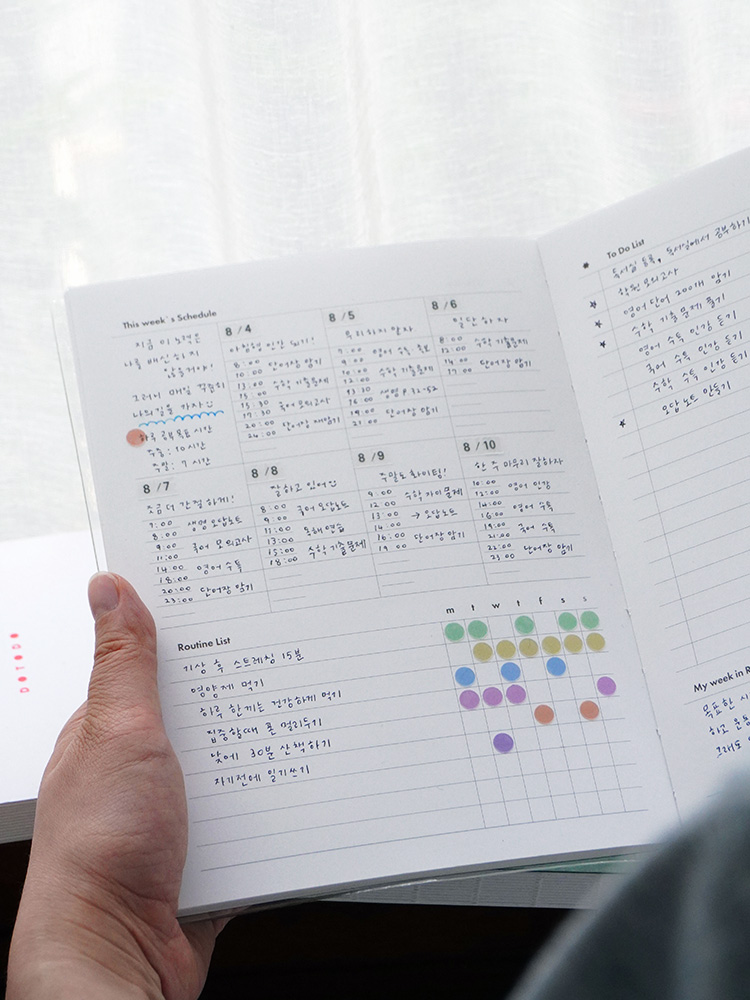 This week's Schedule
지금 이 노력은
나를 배신하지
않을거야!
그러니 매일 꾸준히
하루 공부 목표 시간
주중: 10시간
주말: 7시간
8/4
아침형 인간 되기!
8:00
10:00 단어장 암기
13:00 수학 기출문제
15:00
15:30 국어 모의고사
17:30
20:00 단어장 재암기
24:00
8/5
무리하지 말자
9:00 영어 수특 복습
10:00
10:00 수학 기출문제
12:00
13:30 생명 P 32-52
16:00
19:00 단어장 암기
21:00
8/6
일단 하자
8:00 수학 기출문제
12:00
14:00 단어장 암기
17:00
8/7
조금 더 간절하게!
7:00 생명 오답노트
8:00
9:00 국어 모의고사
11:00
14:00 영어 수특
18:00
20:00 단어장 암기
23:00
8/8
잘하고 있어
8:00 국어 오답노트
9:00
11:00 독해연습
13:00
15:00 수학 기출문제
18:00
8/9
주말도 화이팅!
9:00 수학 자이 문제
12:00
13:00 → 오답노트
14:00
16:00 단어장 암기
19:00
8/10
한 주 마무리 잘하자
10:00 영어 인강
12:00
14:00 영어 수특
16:00
19:00 국어 수특
21:00
22:00 단어장 암기
23:00
Routine List
m t w t f s s
기상 후 스트레칭 15분
영양제 먹기
하루 한끼는 건강하게 먹기
집중할때 폰 멀리두기
낮에 30분 산책하기
자기전에 일기쓰기
To Do List
독서실 등록, 독서실에서 공부하기
학원 모의고사
영어 단어 200개 암기
수학 기출 문제 풀기
영어 수특 인강 듣기
국어 수특 인강 듣기
수학 수특 인강 듣기
오답노트 만들기
My week in R